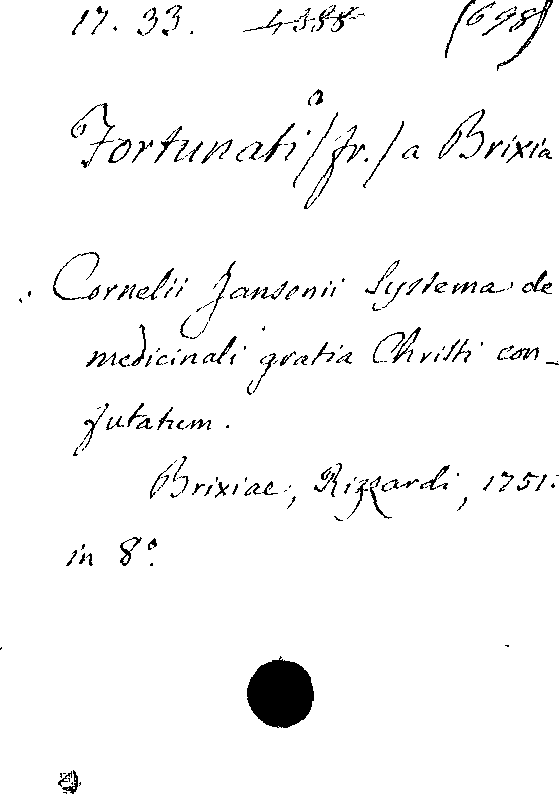 17. 33. 4388 (698)
Fortunati (fr.) a Brixia
Cornelii Jansenii Systema de
medicinali gratia Christi con-
futatum.
Brixiae, Rizzardi, 1751.
in 8°.